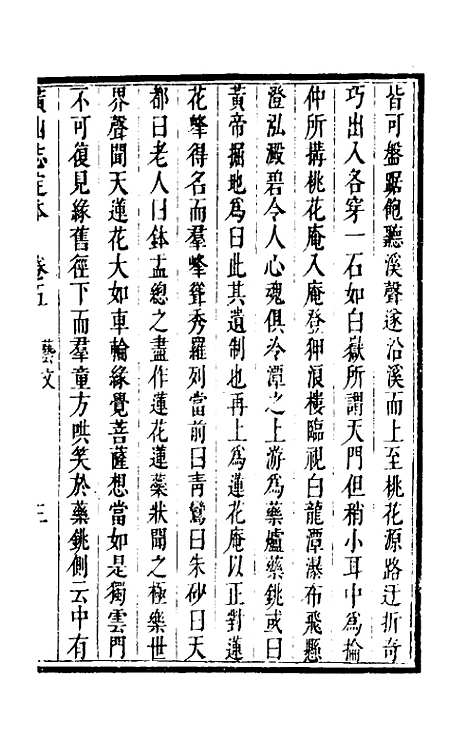 皆可盤踞飽聽溪聲遂沿溪而上至桃花源路迂折奇
巧出入各穿一石如白嶽所謂天門但稍小耳中爲掄
仲所搆桃花庵入庵登狎浪樓臨視白龍潭瀑布飛懸
澄泓澱碧令人心魂俱冷潭之上游爲藥爐藥銚或曰
黃帝掘地爲臼此其遺制也再上爲蓮花庵以正對蓮
花峰得名而羣峰聳秀羅列當前曰靑鸞曰朱砂曰天
都曰老人曰鉢盂總之盡作蓮花蓮藥狀聞之極樂世
界聲聞天蓮花大如車輪緣覺菩薩想當如是獨雲門
不可復見緣舊徑下而羣童方哄笑於藥銚側云中有
黃山志定本 卷五 藝文